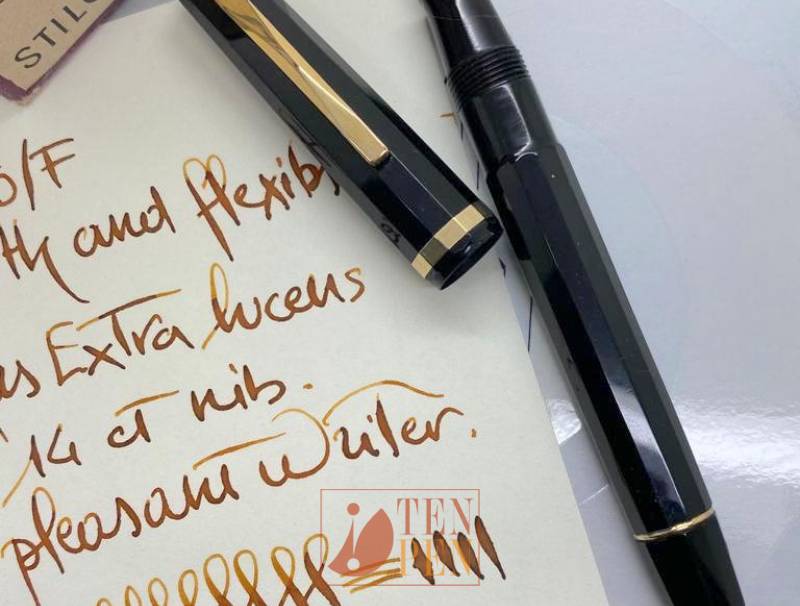 STILO
O/F
and flexib
Extra lucens
14 ct nib.
pleasant writer.
TEN
PEN